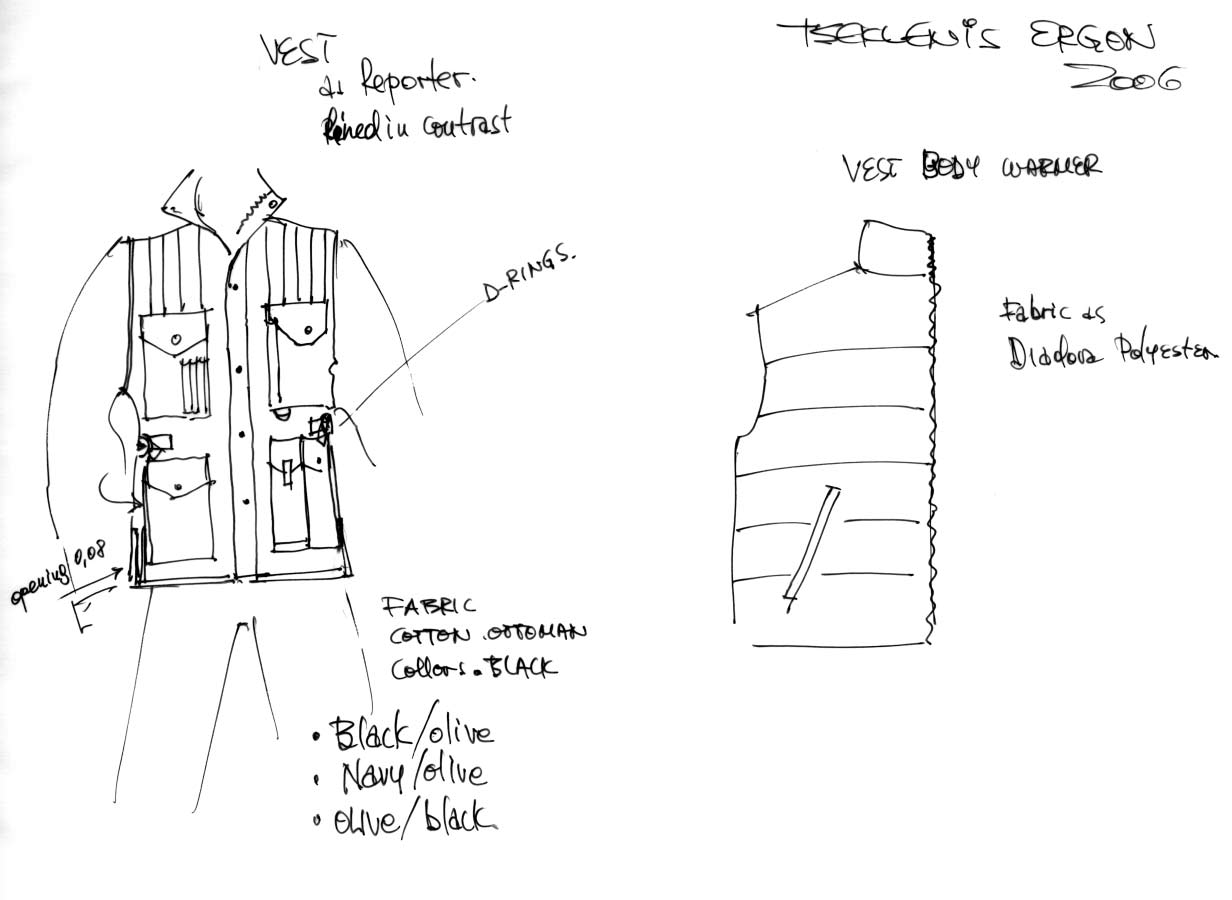 VEST
as Reporter.
lined in contrast
TSEKLENIS ERGON
2006
VEST BODY WARMER
D-RINGS.
Fabric as
Diadora Polyester
opening 0,08
FABRIC
COTTON OTTOMAN
Collors. BLACK
• Black/olive
• Navy/olive
• olive/black